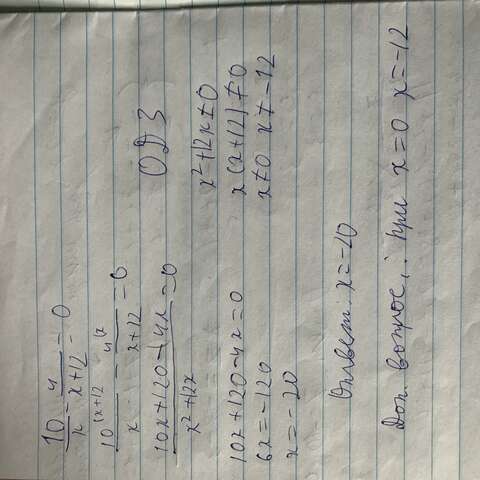 10/x - 4/x+12 = 0
10^(x+12 /x - 4^(x /x+12 = 0
10x+120-4x/x²+12x = 0
ОДЗ
x²+12x≠0
x(x+12)≠0
x≠0 x≠-12
10x+120-4x=0
6x=-120
x=-20
Ответ: x=-20
Доп. вопрос: при x=0 x=-12